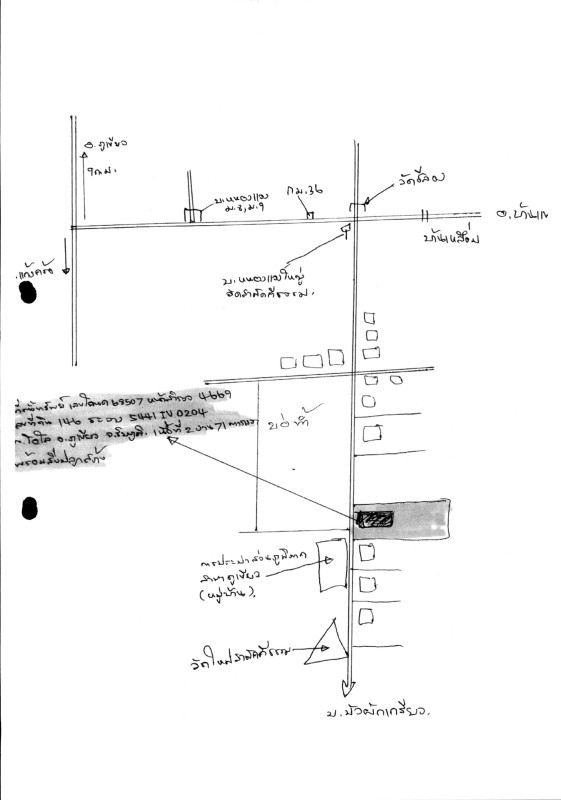 อ. ภูเขียว
9 กม.
บ. หนองแวง
ม.8, ม.9
กม.36
อ. บ้านแ
บ้านเหลื่อม
.แก้งคร้อ
บ. หนองแวงใหญ่
ที่ตั้งทรัพย์ เลขโฉนด 68507 หน้าสำรวจ 4669
เลขที่ดิน 146 ระวาง 5441 IV 0204
อ.ภูเขียว จ.ชัยภูมิ. เนื้อที่ 2 งาน 71 ตารางวา
พร้อมสิ่งปลูกสร้าง
การประปาส่วนภูมิภาค
สาขาภูเขียว
(หมู่บ้าน).
วัดใหม่สามัคคีธรรม
บ. บัวพักเกรียว.